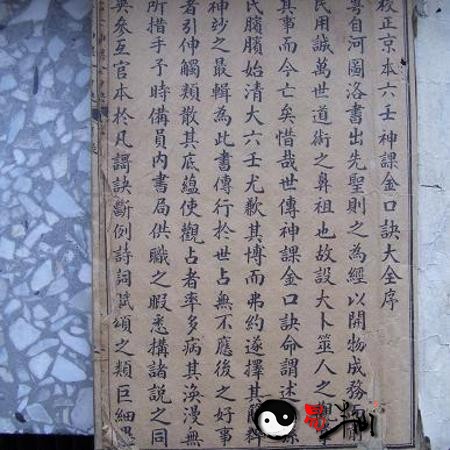 校正京本六壬神課金口訣大全序
粵自河圖洛書出先聖則之為經以開物成務而前
民用誠萬世道術之鼻祖也故設大卜筮人之
其事而今亡矣惜哉世傳神課金口訣命謂述孫
氏臏始清大六壬尤歎其博而弗約遂擇其精粹
神妙之最輯為此書傳行於世占無不應後之好事
者引伸觸類散其底蘊使觀占者率多病其渙漫無
所措手予時備員内書局供職之暇悉搆諸說之同
異參互官本於凡謌訣斷例詩詞賦頌之類巨細